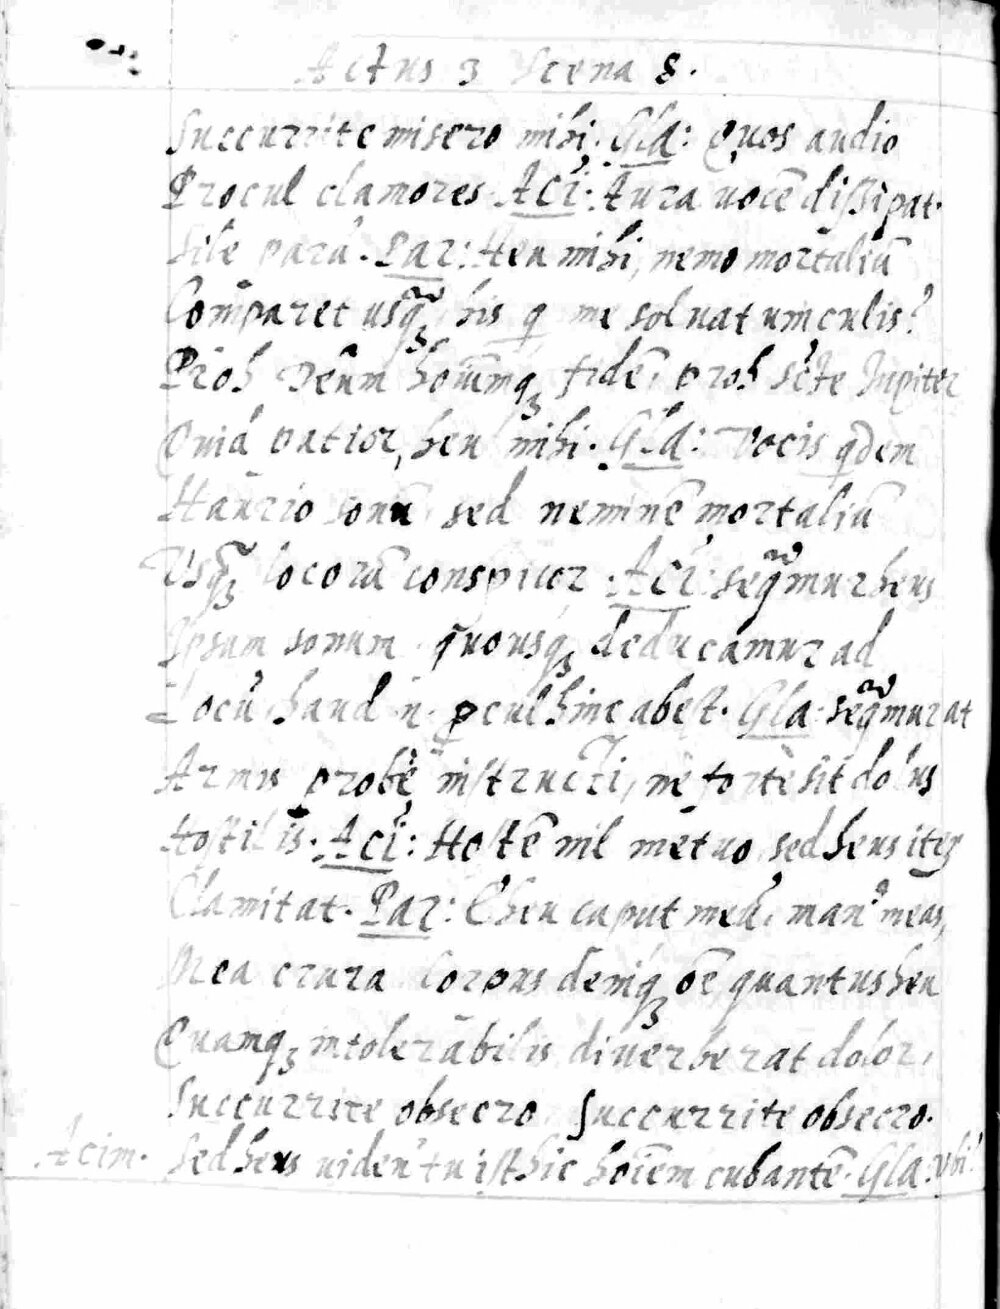 Actus 3 Scena 8.
Succurrite misero mihi. Gla: Quos audio
Procul clamores. Aci: Aura uocē dissipat.
Sile parū. Par: Heu mihi, nemo mortaliū
Comparet usq̃ his q̄ me soluat uinculis?
Proh Deūm hoīūmqȝ fidē, proh sctē Jupiter
Quid patior, heu mihi. Gla: Vocis qdem
Haurio sonū sed neminē mortaliū
Vsqȝ locorū conspicor. Aci: seqmur heus
Ipsum sonum quousqȝ deducamur ad
Locū haud n. ꝑcul hinc abest. Gla: seqmur at
Armis probè instructi, ne fortè sit dolus
Hostilis. Aci: Hostē nil metuo, sed heus iterꝫ
Clamitat. Par: Eheu caput meū, manꝰ meas,
Mea crura corpus deniqȝ oē quantus heu
Quamqȝ intolerabilis diuerberat dolor,
Succurrite obsecro succurrite obsecro.
Acim. Sed heus uiden' tu isthic hoīem cubantē. Gla: Vbi?